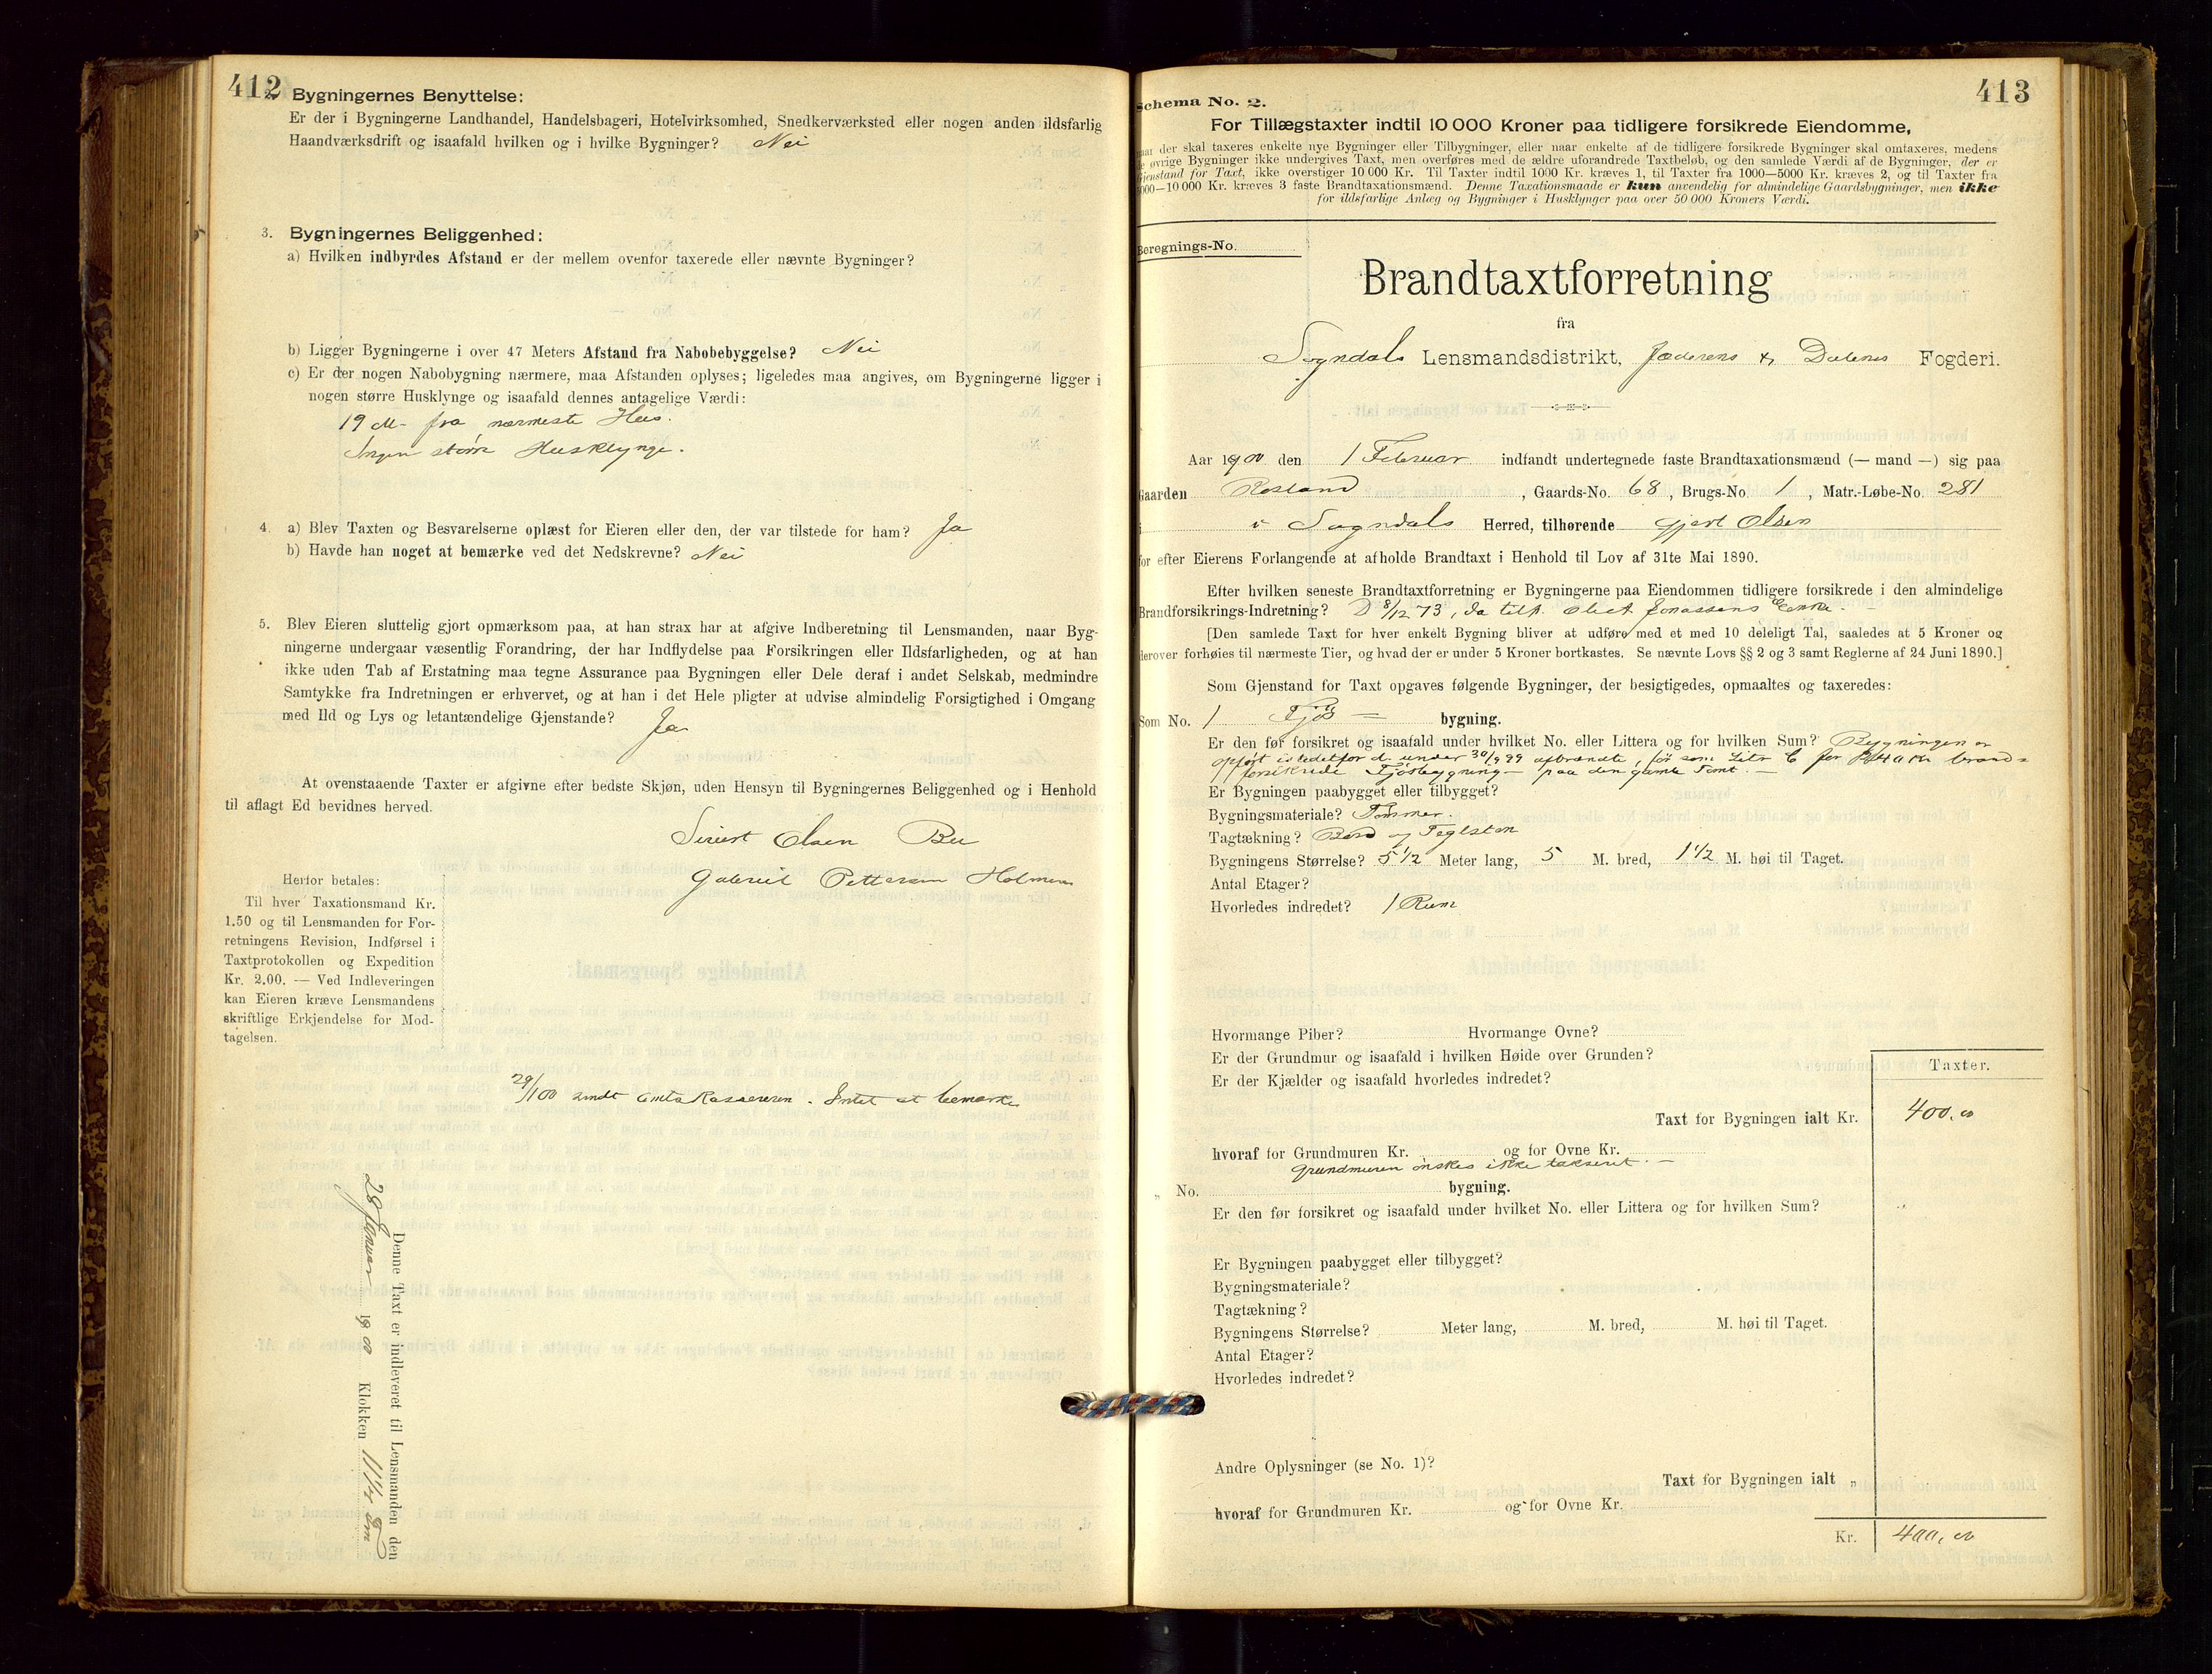 412
Bygningernes Benyttelse:
Er der i Bygningerne Landhandel, Handelsbageri, Hotelvirksomhed, Snedkerværksted eller nogen anden ildsfarlig
Haandværksdrift og isaafald hvilken og i hvilke Bygninger? Nei
3. Bygningernes Beliggenhed:
a) Hvilken indbyrdes Afstand er der mellem ovenfor taxerede eller nævnte Bygninger?
b) Ligger Bygningerne i over 47 Meters Afstand fra Nabobebyggelse? Nei
c) Er der nogen Nabobygning nærmere, maa Afstanden oplyses; ligeledes maa angives, om Bygningerne ligger i
nogen større Husklynge og isaafald dennes antagelige Værdi:
19 M. fra nærmeste Hus.
Ingen større Husklynge.
4. a) Blev Taxten og Besvarelserne oplæst for Eieren eller den, der var tilstede for ham? Ja
b) Havde han noget at bemærke ved det Nedskrevne? Nei
5. Blev Eieren sluttelig gjort opmærksom paa, at han strax har at afgive Indberetning til Lensmanden, naar Byg-
ningerne undergaar væsentlig Forandring, der har Indflydelse paa Forsikringen eller Ildsfarligheden, og at han
ikke uden Tab af Erstatning maa tegne Assurance paa Bygningen eller Dele deraf i andet Selskab, medmindre
Samtykke fra Indretningen er erhvervet, og at han i det Hele pligter at udvise almindelig Forsigtighed i Omgang
med Ild og Lys og letantændelige Gjenstande? Ja
At ovenstaaende Taxter er afgivne efter bedste Skjøn, uden Hensyn til Bygningernes Beliggenhed og i Henhold
til aflagt Ed bevidnes herved.
Sivert Olsen Bu
Gabriel Pettersen Holmen
Herfor betales:
Til hver Taxationsmand Kr.
1.50 og til Lensmanden for For-
retningens Revision, Indførsel i
Taxtprotokollen og Expedition
Kr. 2.00. — Ved Indleveringen
kan Eieren kræve Lensmandens
skriftlige Erkjendelse for Mod-
tagelsen.
29/1 00 sendt Amtskassereren. Intet at bemærke
Denne Taxt er indleveret til Lensmanden den
28 Januar 1900 Klokken 11 1/2 Fm
413
Schema No. 2.
For Tillægstaxter indtil 10 000 Kroner paa tidligere forsikrede Eiendomme,
naar der skal taxeres enkelte nye Bygninger eller Tilbygninger, eller naar enkelte af de tidligere forsikrede Bygninger skal omtaxeres, medens
de øvrige Bygninger ikke undergives Taxt, men overføres med de ældre uforandrede Taxtbeløb, og den samlede Værdi af de Bygninger, der er
Gjenstand for Taxt, ikke overstiger 10 000 Kr. Til Taxter indtil 1000 Kr. kræves 1, til Taxter fra 1000—5000 Kr. kræves 2, og til Taxter fra
5000—10 000 Kr. kræves 3 faste Brandtaxationsmænd. Denne Taxationsmaade er kun anvendelig for almindelige Gaardsbygninger, men ikke
for ildsfarlige Anlæg og Bygninger i Husklynger paa over 50 000 Kroners Værdi.
Beregnings-No.
Brandtaxtforretning
fra
Sogndals Lensmandsdistrikt, Jæderens & Dalenes Fogderi.
Aar 1900 den 1 Februar indfandt undertegnede faste Brandtaxationsmænd (— mand —) sig paa
Gaarden Rosland, Gaards-No. 68, Brugs-No. 1, Matr.-Løbe-No. 281
i Sogndals Herred, tilhørende Gjert Olsen
for efter Eierens Forlangende at afholde Brandtaxt i Henhold til Lov af 31te Mai 1890.
Efter hvilken seneste Brandtaxtforretning er Bygningerne paa Eiendommen tidligere forsikrede i den almindelige
Brandforsikrings-Indretning? D 8/12 73, da tilh. Jonassens Enke.
[Den samlede Taxt for hver enkelt Bygning bliver at udføre med et med 10 deleligt Tal, saaledes at 5 Kroner og
derover forhøies til nærmeste Tier, og hvad der er under 5 Kroner bortkastes. Se nævnte Lovs §§ 2 og 3 samt Reglerne af 24 Juni 1890.]
Som Gjenstand for Taxt opgaves følgende Bygninger, der besigtigedes, opmaaltes og taxeredes:
Som No. 1 Fjøs= bygning.
Er den før forsikret og isaafald under hvilket No. eller Littera og for hvilken Sum? Bygningen er
opført istedetfor d. under 30/9 99 afbrændte, før som Litr C for Kr brand=
forsikrede Fjøsbygning — paa den gamle Tomt. —
Er Bygningen paabygget eller tilbygget?
Bygningsmateriale? Tømmer.
Tagtækning? Bord og Teglsten
Bygningens Størrelse? 5 1/2 Meter lang, 5 M. bred, 1 1/2 M. høi til Taget.
Antal Etager?
Hvorledes indredet? 1 Rum
Hvormange Piber? Hvormange Ovne?
Er der Grundmur og isaafald i hvilken Høide over Grunden?
Er der Kjælder og isaafald hvorledes indredet?
Taxter.
Taxt for Bygningen ialt Kr. 400,00
hvoraf for Grundmuren Kr. og for Ovne Kr.
Grundmuren ønskes ikke takseret. —
„ No. bygning.
Er den før forsikret og isaafald under hvilket No. eller Littera og for hvilken Sum?
Er Bygningen paabygget eller tilbygget?
Bygningsmateriale?
Tagtækning?
Bygningens Størrelse? Meter lang, M. bred, M. høi til Taget.
Antal Etager?
Hvorledes indredet?
Andre Oplysninger (se No. 1)?
Taxt for Bygningen ialt „
hvoraf for Grundmuren Kr. og for Ovne Kr.
Kr. 400,00